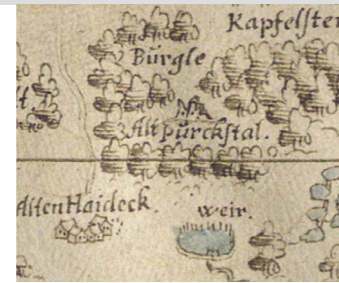 Kapfelste
Bürgle
Alt pürckstal.
Alten Haideck.
weir.